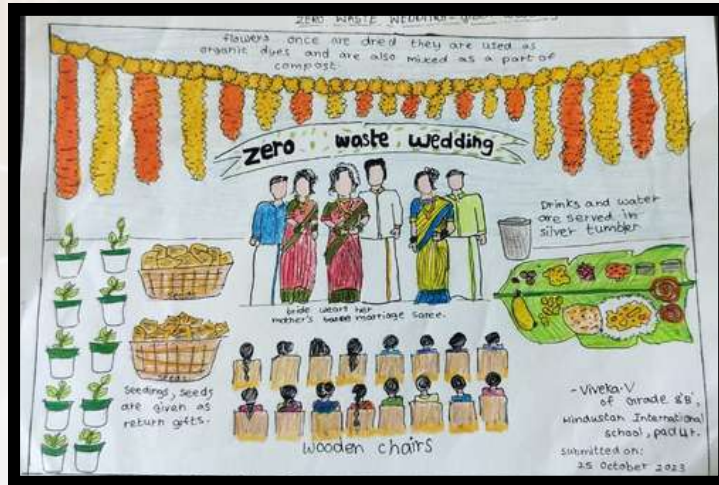 ZERO WASTE WEDDING
flowers once are dried they are used as
organic dyes and are also mixed as a part of
compost.
zero waste wedding
Drinks and water
are served in
silver tumbler
bride wears her
mother's marriage saree.
seedings, seeds
are given as
return gifts.
wooden chairs
- Viveka.V
of Grade 8'B',
Hindustan International
school, padur.
submitted on:
25 October 2023